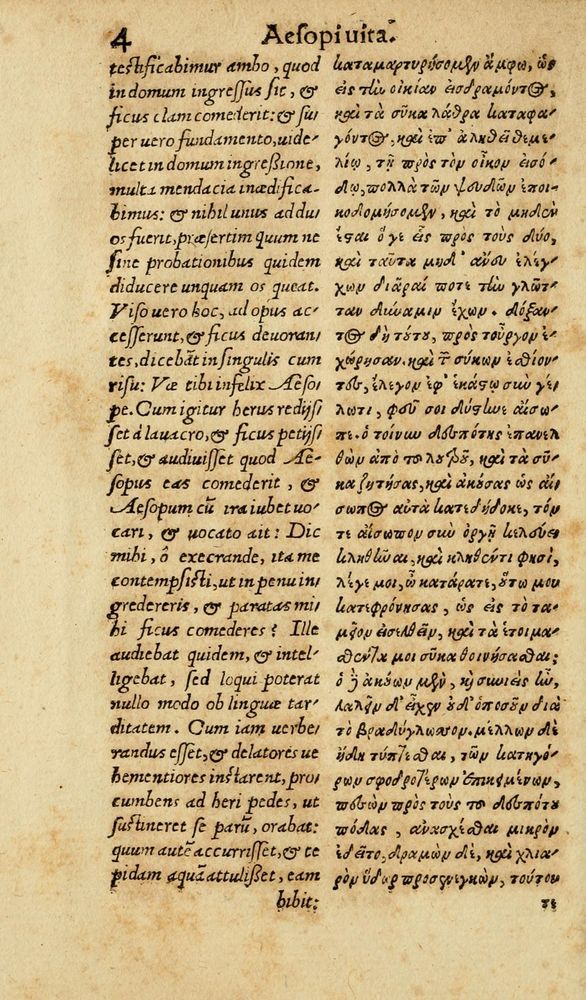 4 Aesopi uita.
testificabimur ambo, quod
in domum ingressus sit, &
ficus clam comederit: & su
per uero fundamento, uide-
licet in domum ingreßione,
multa mendacia inædifica-
bimus: & nihil unus ad du-
os fuerit, præsertim quum ne
sine probationibus quidem
diducere unquam os queat.
Viso uero hoc, ad opus ac-
cesserunt, & ficus deuoran-
tes, dicebāt in singulis cum
risu: Væ tibi infelix Æso-
pe. Cum igitur herus redijs-
set à lauacro, & ficus petijs-
set, & audiuisset quod Æ-
sopus eas comederit, &
Aesopum cū ira iubet uo-
cari, & uocato ait: Dic
mihi, ô execrande, ita me
contempsisti, ut in penu in-
gredereris, & paratas mi-
hi ficus comederes? Ille
audiebat quidem, & intel-
ligebat, sed loqui poterat
nullo modo ob linguæ tar-
ditatem. Cum iam uerbe-
randus esset, & delatores ue
hementiores instarent, pro-
cumbens ad heri pedes, ut
sustineret se parū, orabat:
quum autē accurrisset, & te
pidam aquā attulißet, eam
bibit:
καταμαρτυρήσομεν ἄμφω, ὡς
εἰς τὴν οἰκίαν εἰσδραμόντος,
καὶ τὰ σῦκα λάθρα καταφα-
γόντος, καὶ ἐπ' ἀληθεῖ θεμε-
λίῳ, τῇ πρὸς τὸν οἶκον εἰσό-
δῳ, πολλὰ τῶν ψευδῶν ἐποι-
κοδομήσομεν, καὶ τὸ μηδὲν
ἔσται ὅγε εἷς πρὸς τοὺς δύο,
καὶ ταῦτα μηδ' ἄνευ ἐλέγ-
χων διᾶραί ποτε τὴν γλῶτ-
ταν δύναμιν ἔχων. δόξαν-
τος δὴ τούτου, πρὸς τοὖργον ἐ-
χώρησαν. καὶ τῶν σύκων ἐσθίον-
τες, ἔλεγον ἐφ' ἑκάστῳ σὺν γέ-
λωτι, φεῦ σοι δύστηνε αἴσω-
πε. ὁ τοίνυν δεσπότης ἐπανελ-
θὼν ἀπὸ τοῦ λουτροῦ, καὶ τὰ σῦ-
κα ζητήσας, καὶ ἀκούσας ὡς αἴ-
σωπος αὐτὰ κατεδήδοκε, τόν
τε αἴσωπον σὺν ὀργῇ κελεύει
κληθῆναι, καὶ κληθέντι φησὶ,
λέγε μοι, ὦ κατάρατε, οὕτω μου
κατεφρόνησας, ὡς εἰς τὸ τα-
μεῖον εἰσελθεῖν, καὶ τὰ ἑτοιμα-
σθέντα μοι σῦκα θοινήσασθαι;
ὁ δ' ἀκούων μὲν, καὶ συνιεὶς ἦν,
λαλεῖν δ' εἶχεν οὐδ' ὁπωσοῦν διὰ
τὸ βραδύγλωσσον. μέλλων δὲ
ἤδη τύπτεσθαι, τῶν κατηγό-
ρων σφοδροτέρων ἐπικειμένων,
πεσὼν πρὸς τοὺς τοῦ δεσπότου
πόδας, ἀνασχέσθαι μικρὸν
ἐδεῖτο, δραμὼν δὲ, καὶ χλια-
ρὸν ὕδωρ προσενεγκὼν, τούτου
τε